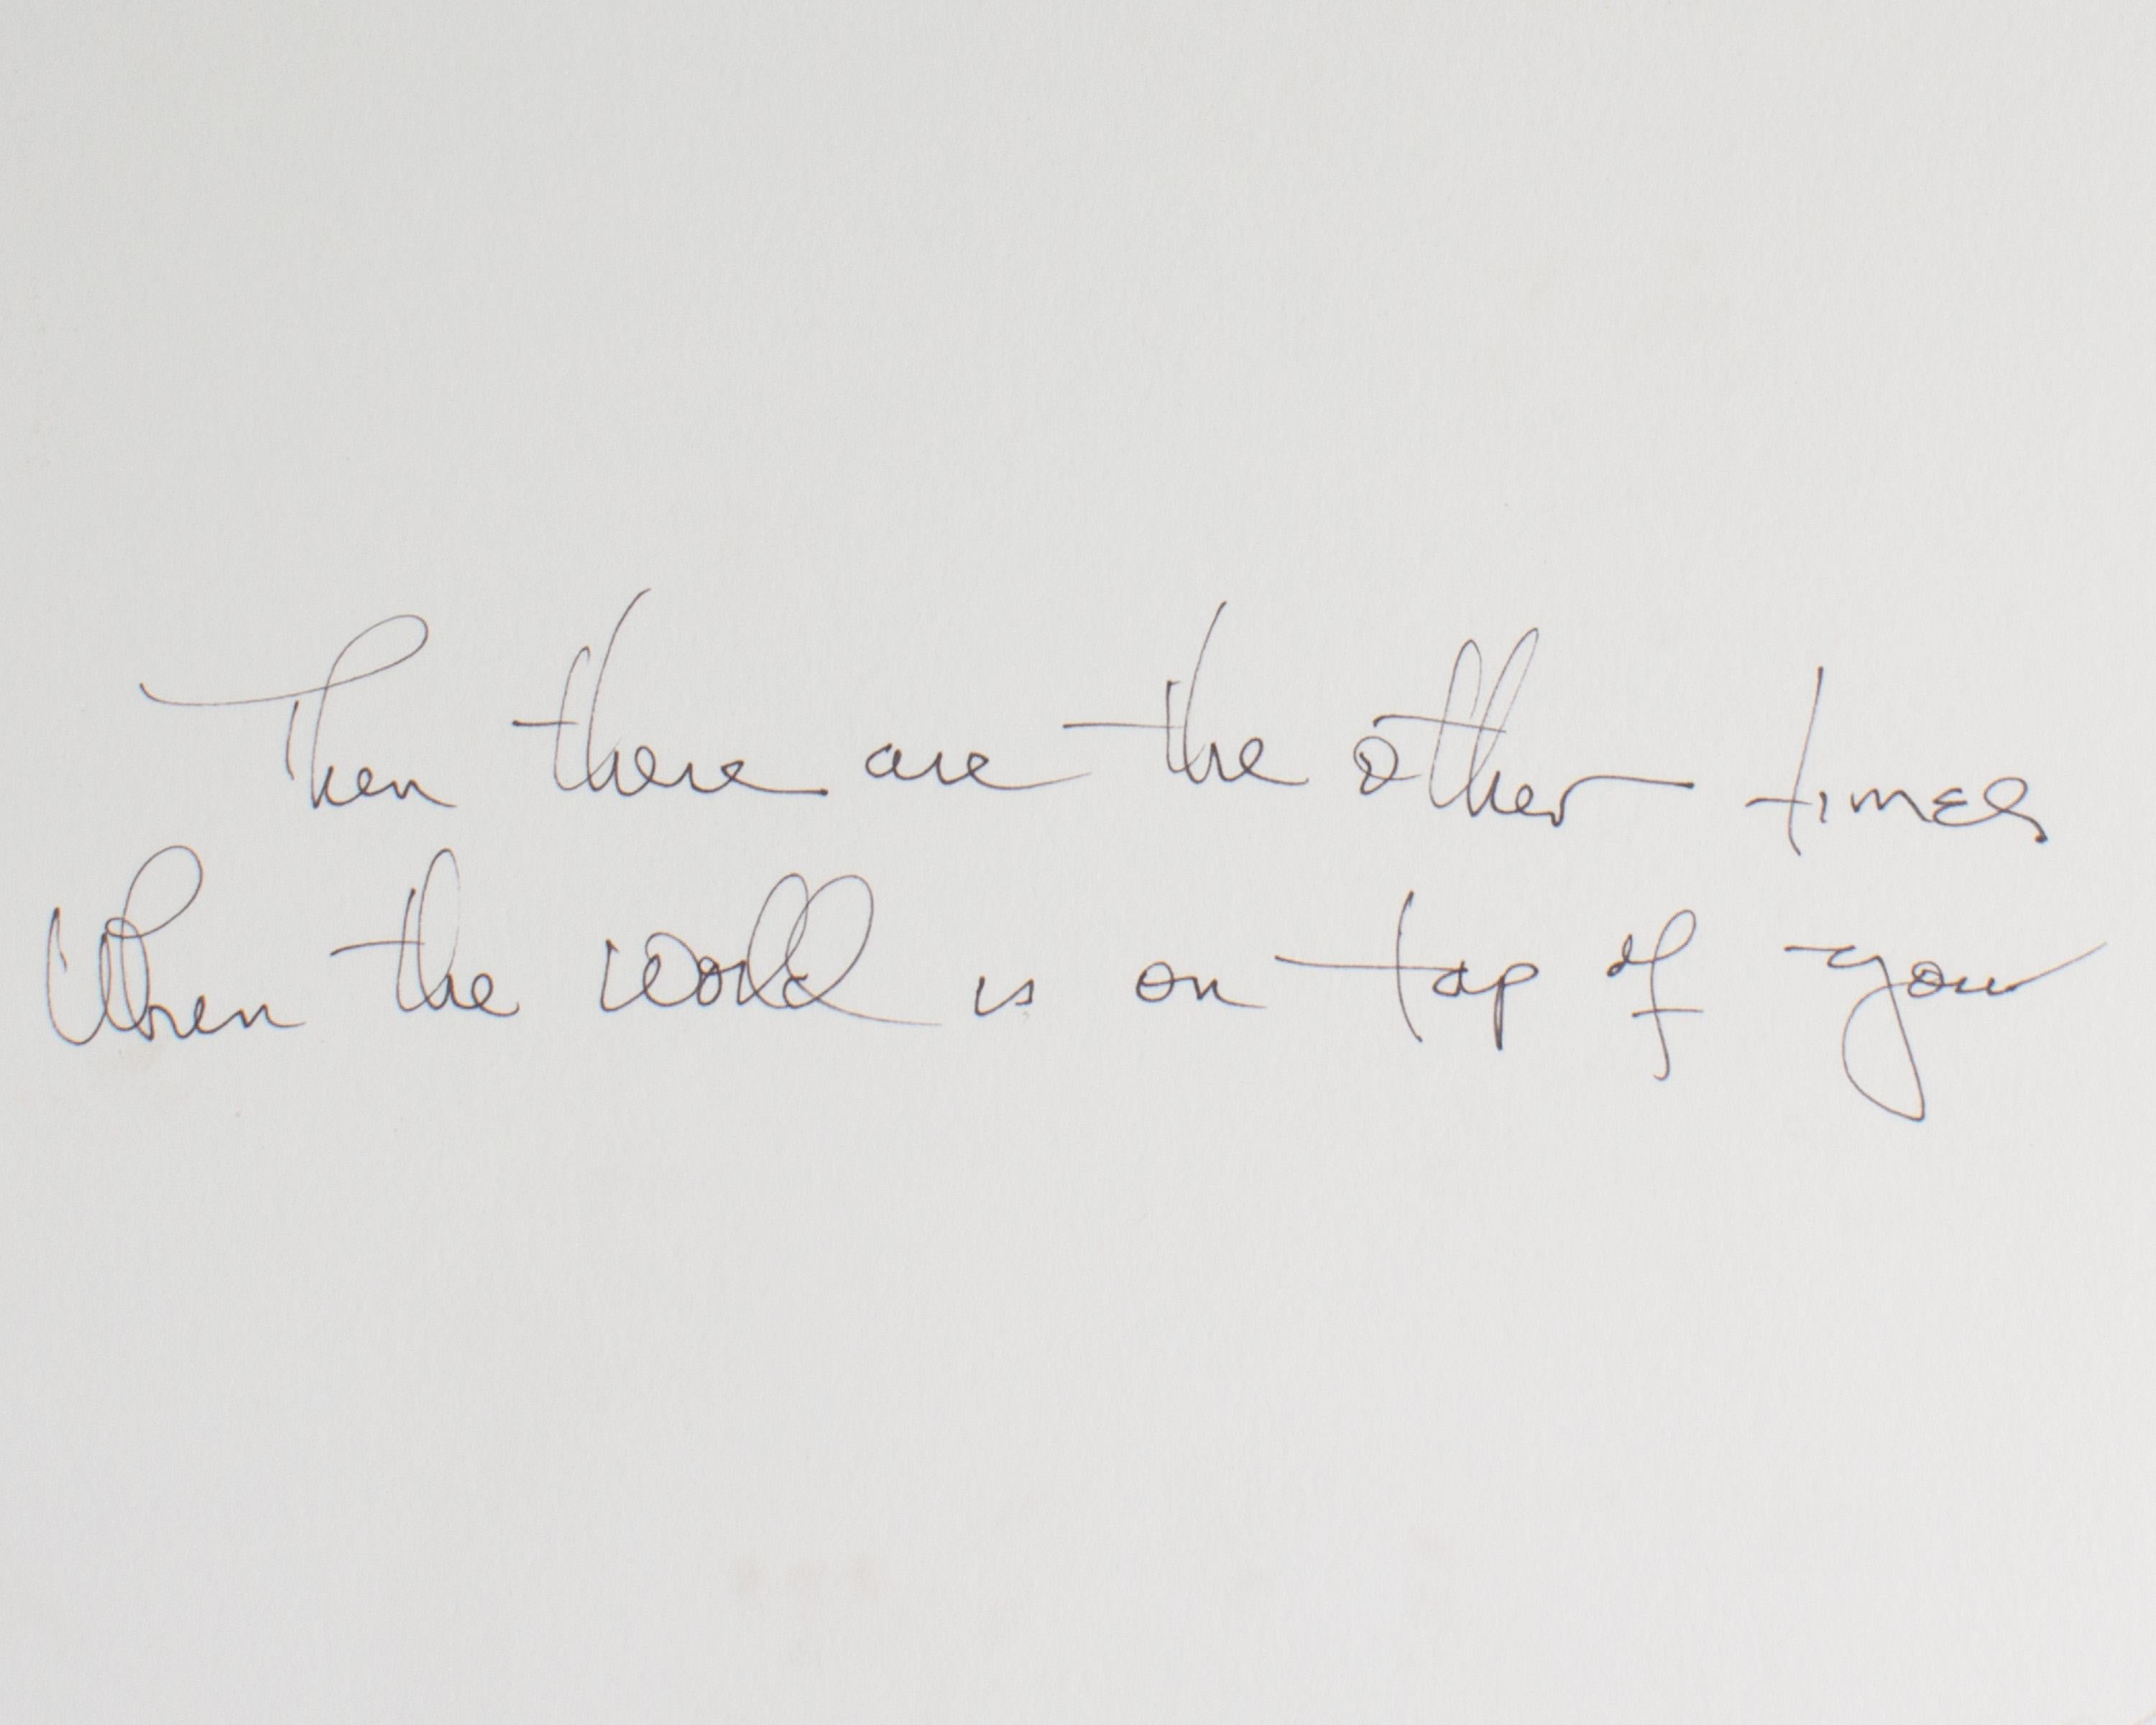 Then there are the other times
When the world is on top of you